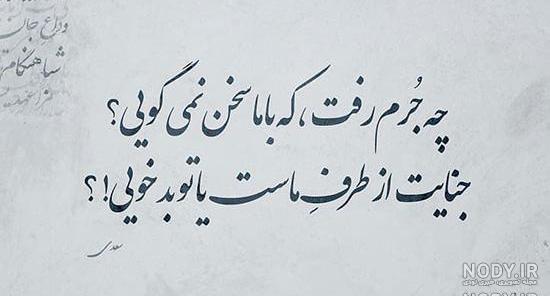 وداعِ جان
چه جُرم رفت، که با ما سخن نمی گویی؟
جنایت از طرفِ ماست یا تو بد خویی!؟
سعدی
NODY.IR
NODY.IR